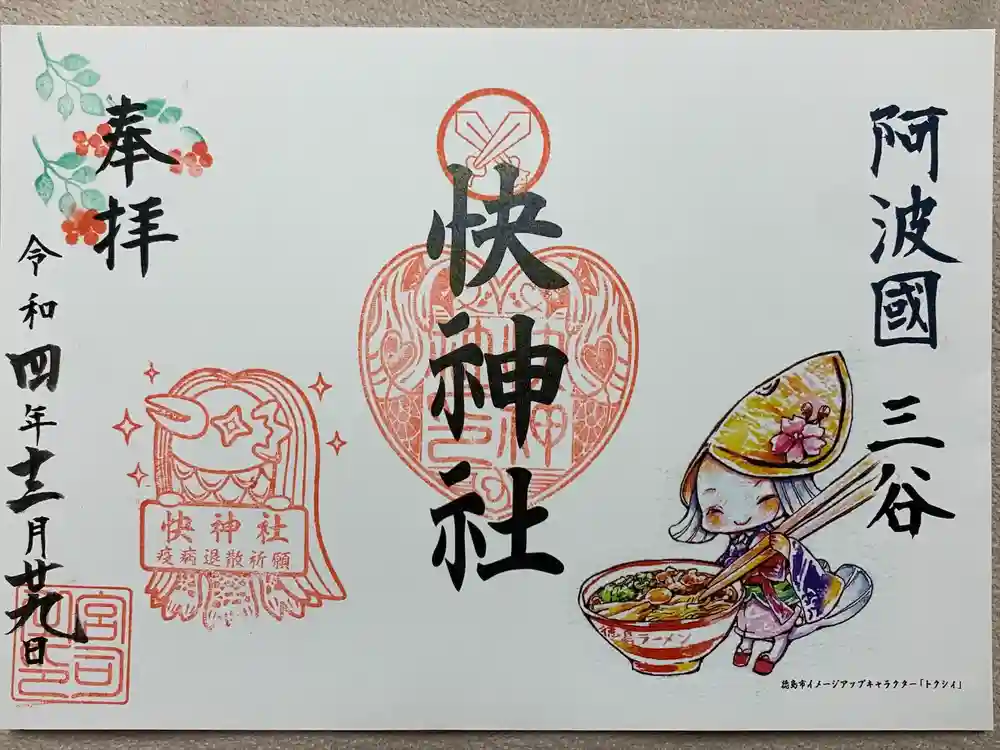 阿波國 三谷
快神社
奉拝
令和四年十二月廿九日
快神社
疫病退散祈願
徳島ラーメン
徳島市イメージアップキャラクター「トクシィ」